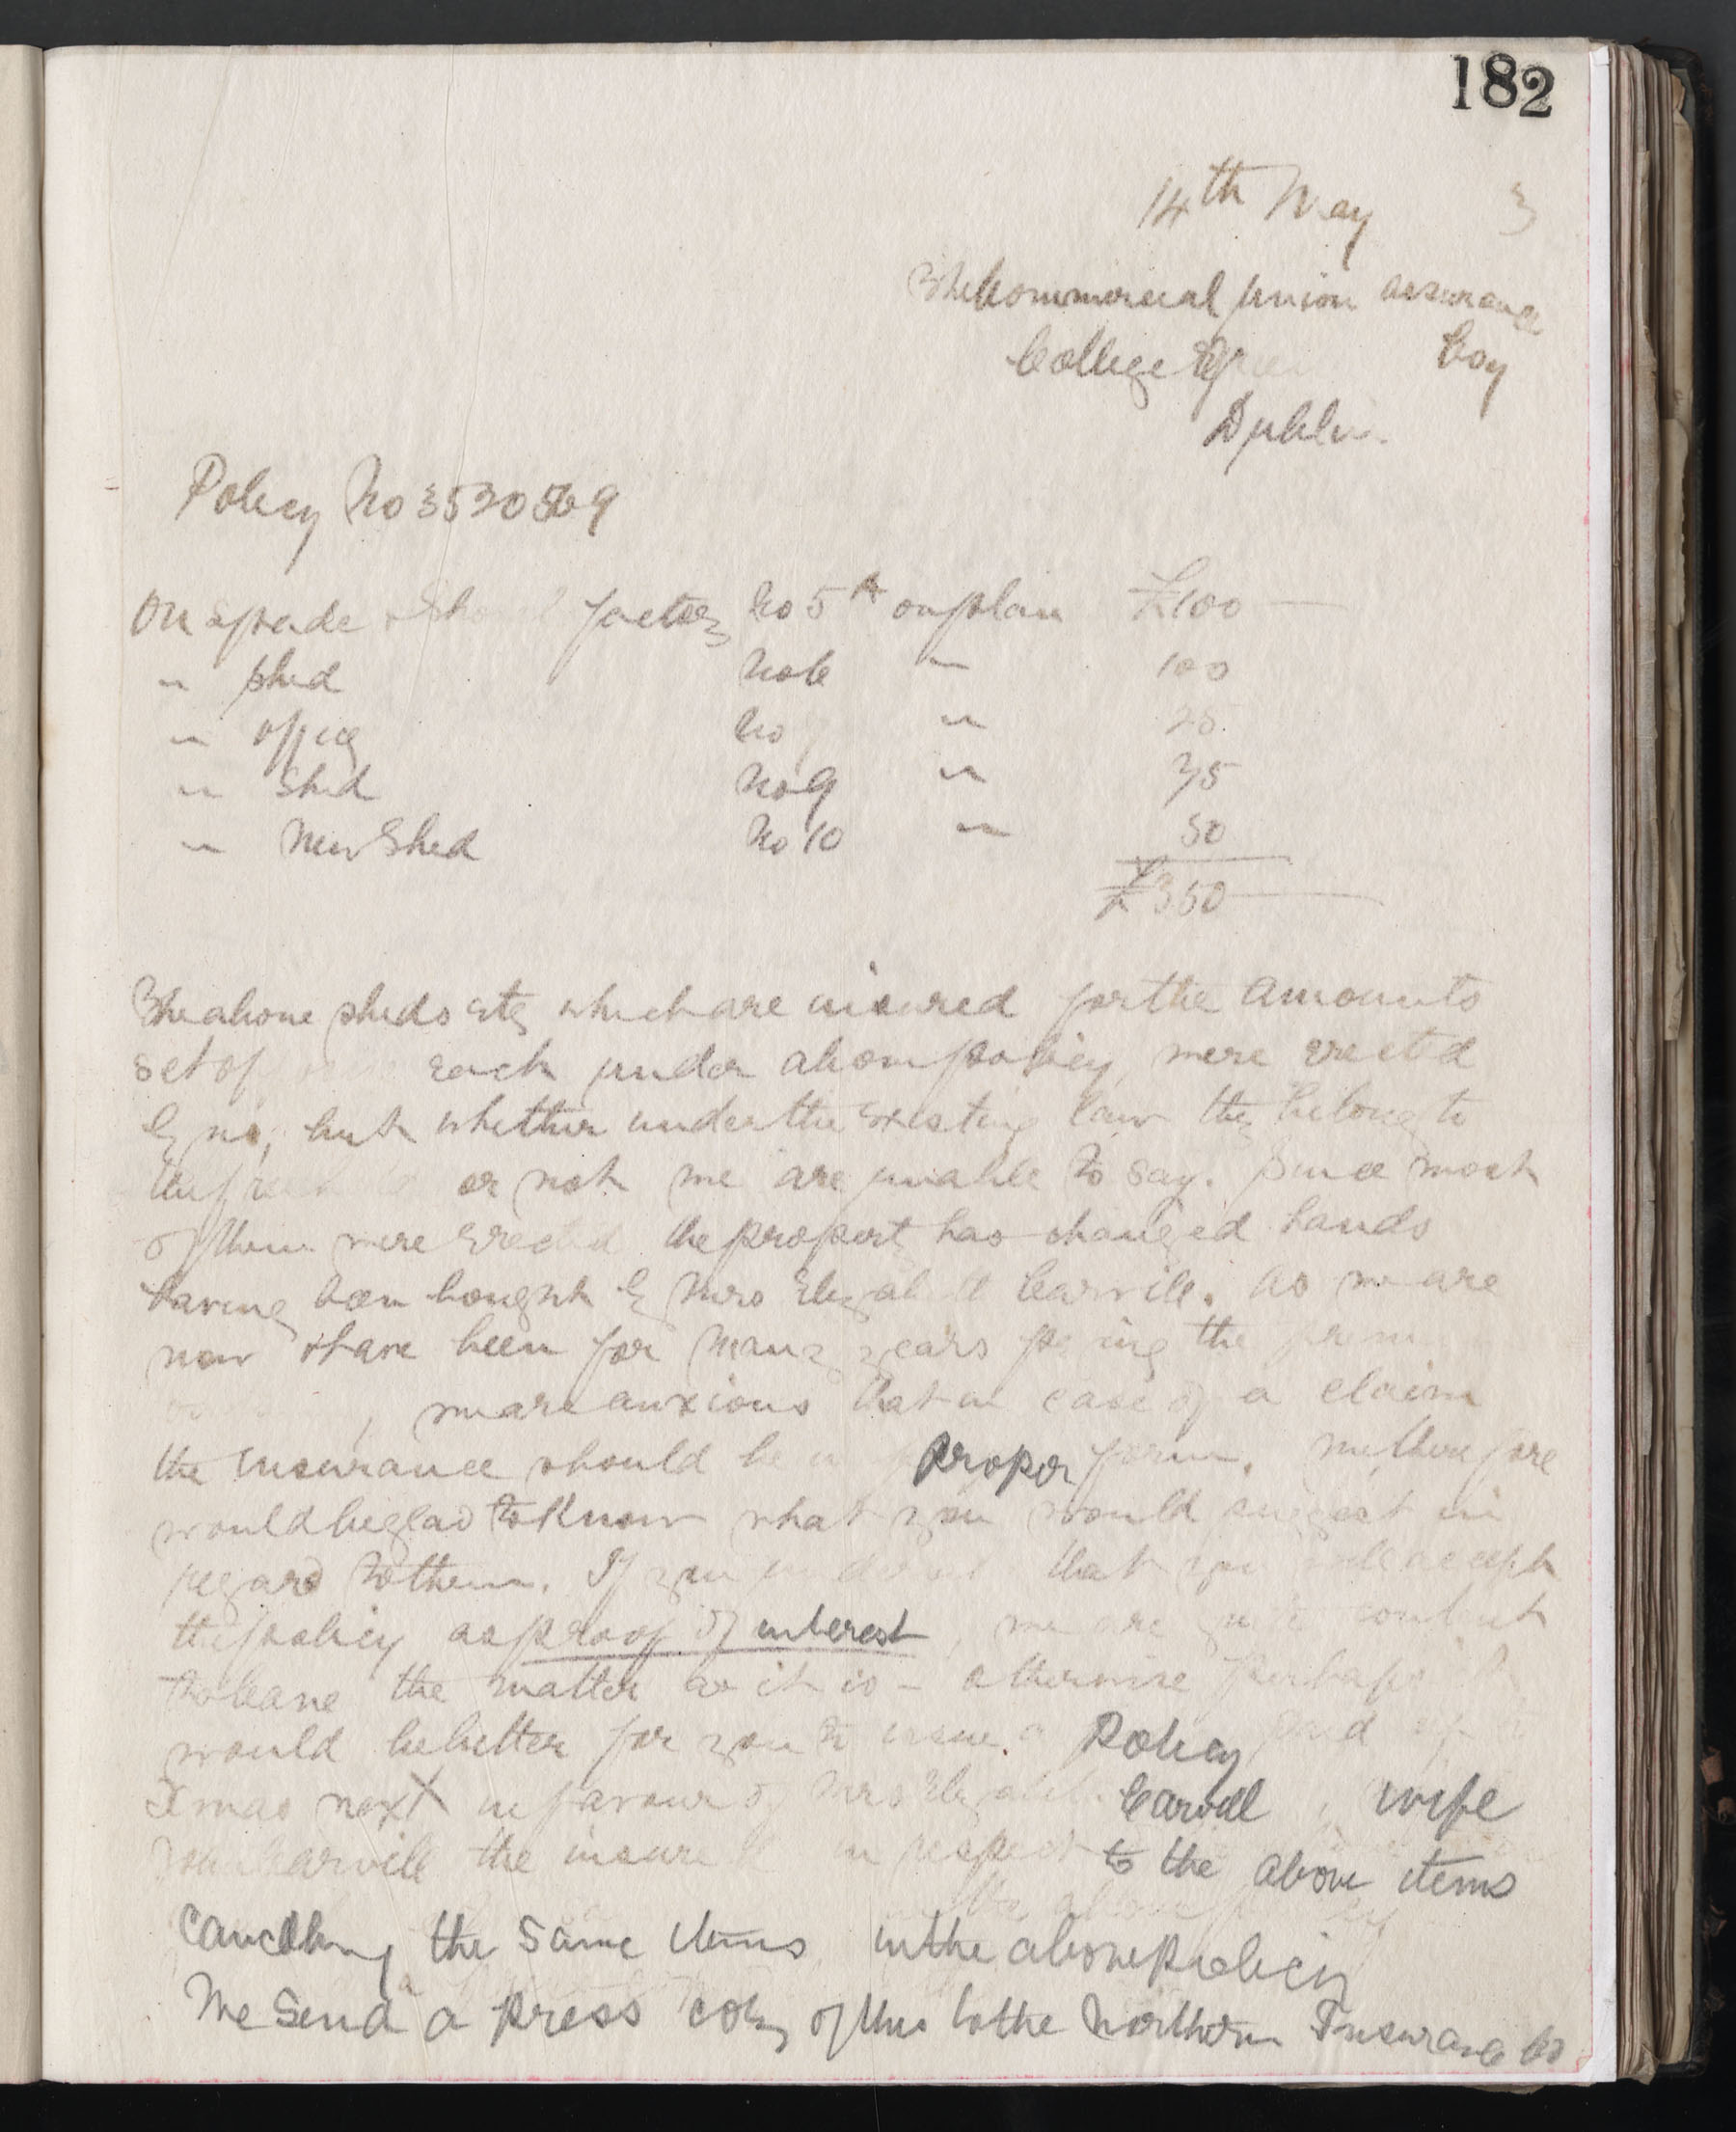 182
14th May 3
The Commercial Union Assurance
College Coy
Dublin.
Policy No 3530569
On Spade factory No 5A on plan £100
" shed No 6 " 100
" office No " 25
" Shed No 9 " 75
" New Shed No 10 " 50
£350
The above sheds etc which are insured for the amounts
set each under above policy, were erected
by us, but whether under the existing law they belong to
or not we are unable to say. Since most
of them were erected the property has changed hands
having been bought by Mrs Elizabeth Carvill. As we are
now & have been for many years paying the
, we are anxious that in case of a claim
the Insurance should be in proper form. We therefore
would be glad to know what you would suggest in
regard to them. If you that you accept
the policy as proof of interest, we are quite content
to leave the matter as it is - otherwise perhaps
would be better for you to issue a Policy paid
Xmas next in favour of Mrs Elizabeth Carvill, wife
John Carvill the insured in respect to the above items
cancelling the same items in the above policy
We send a press copy of this to the Northern Insurance Co